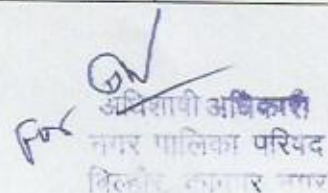 For
अधिशाषी अधिकारी
नगर पालिका परिषद
बिल्हौर, कानपुर नगर